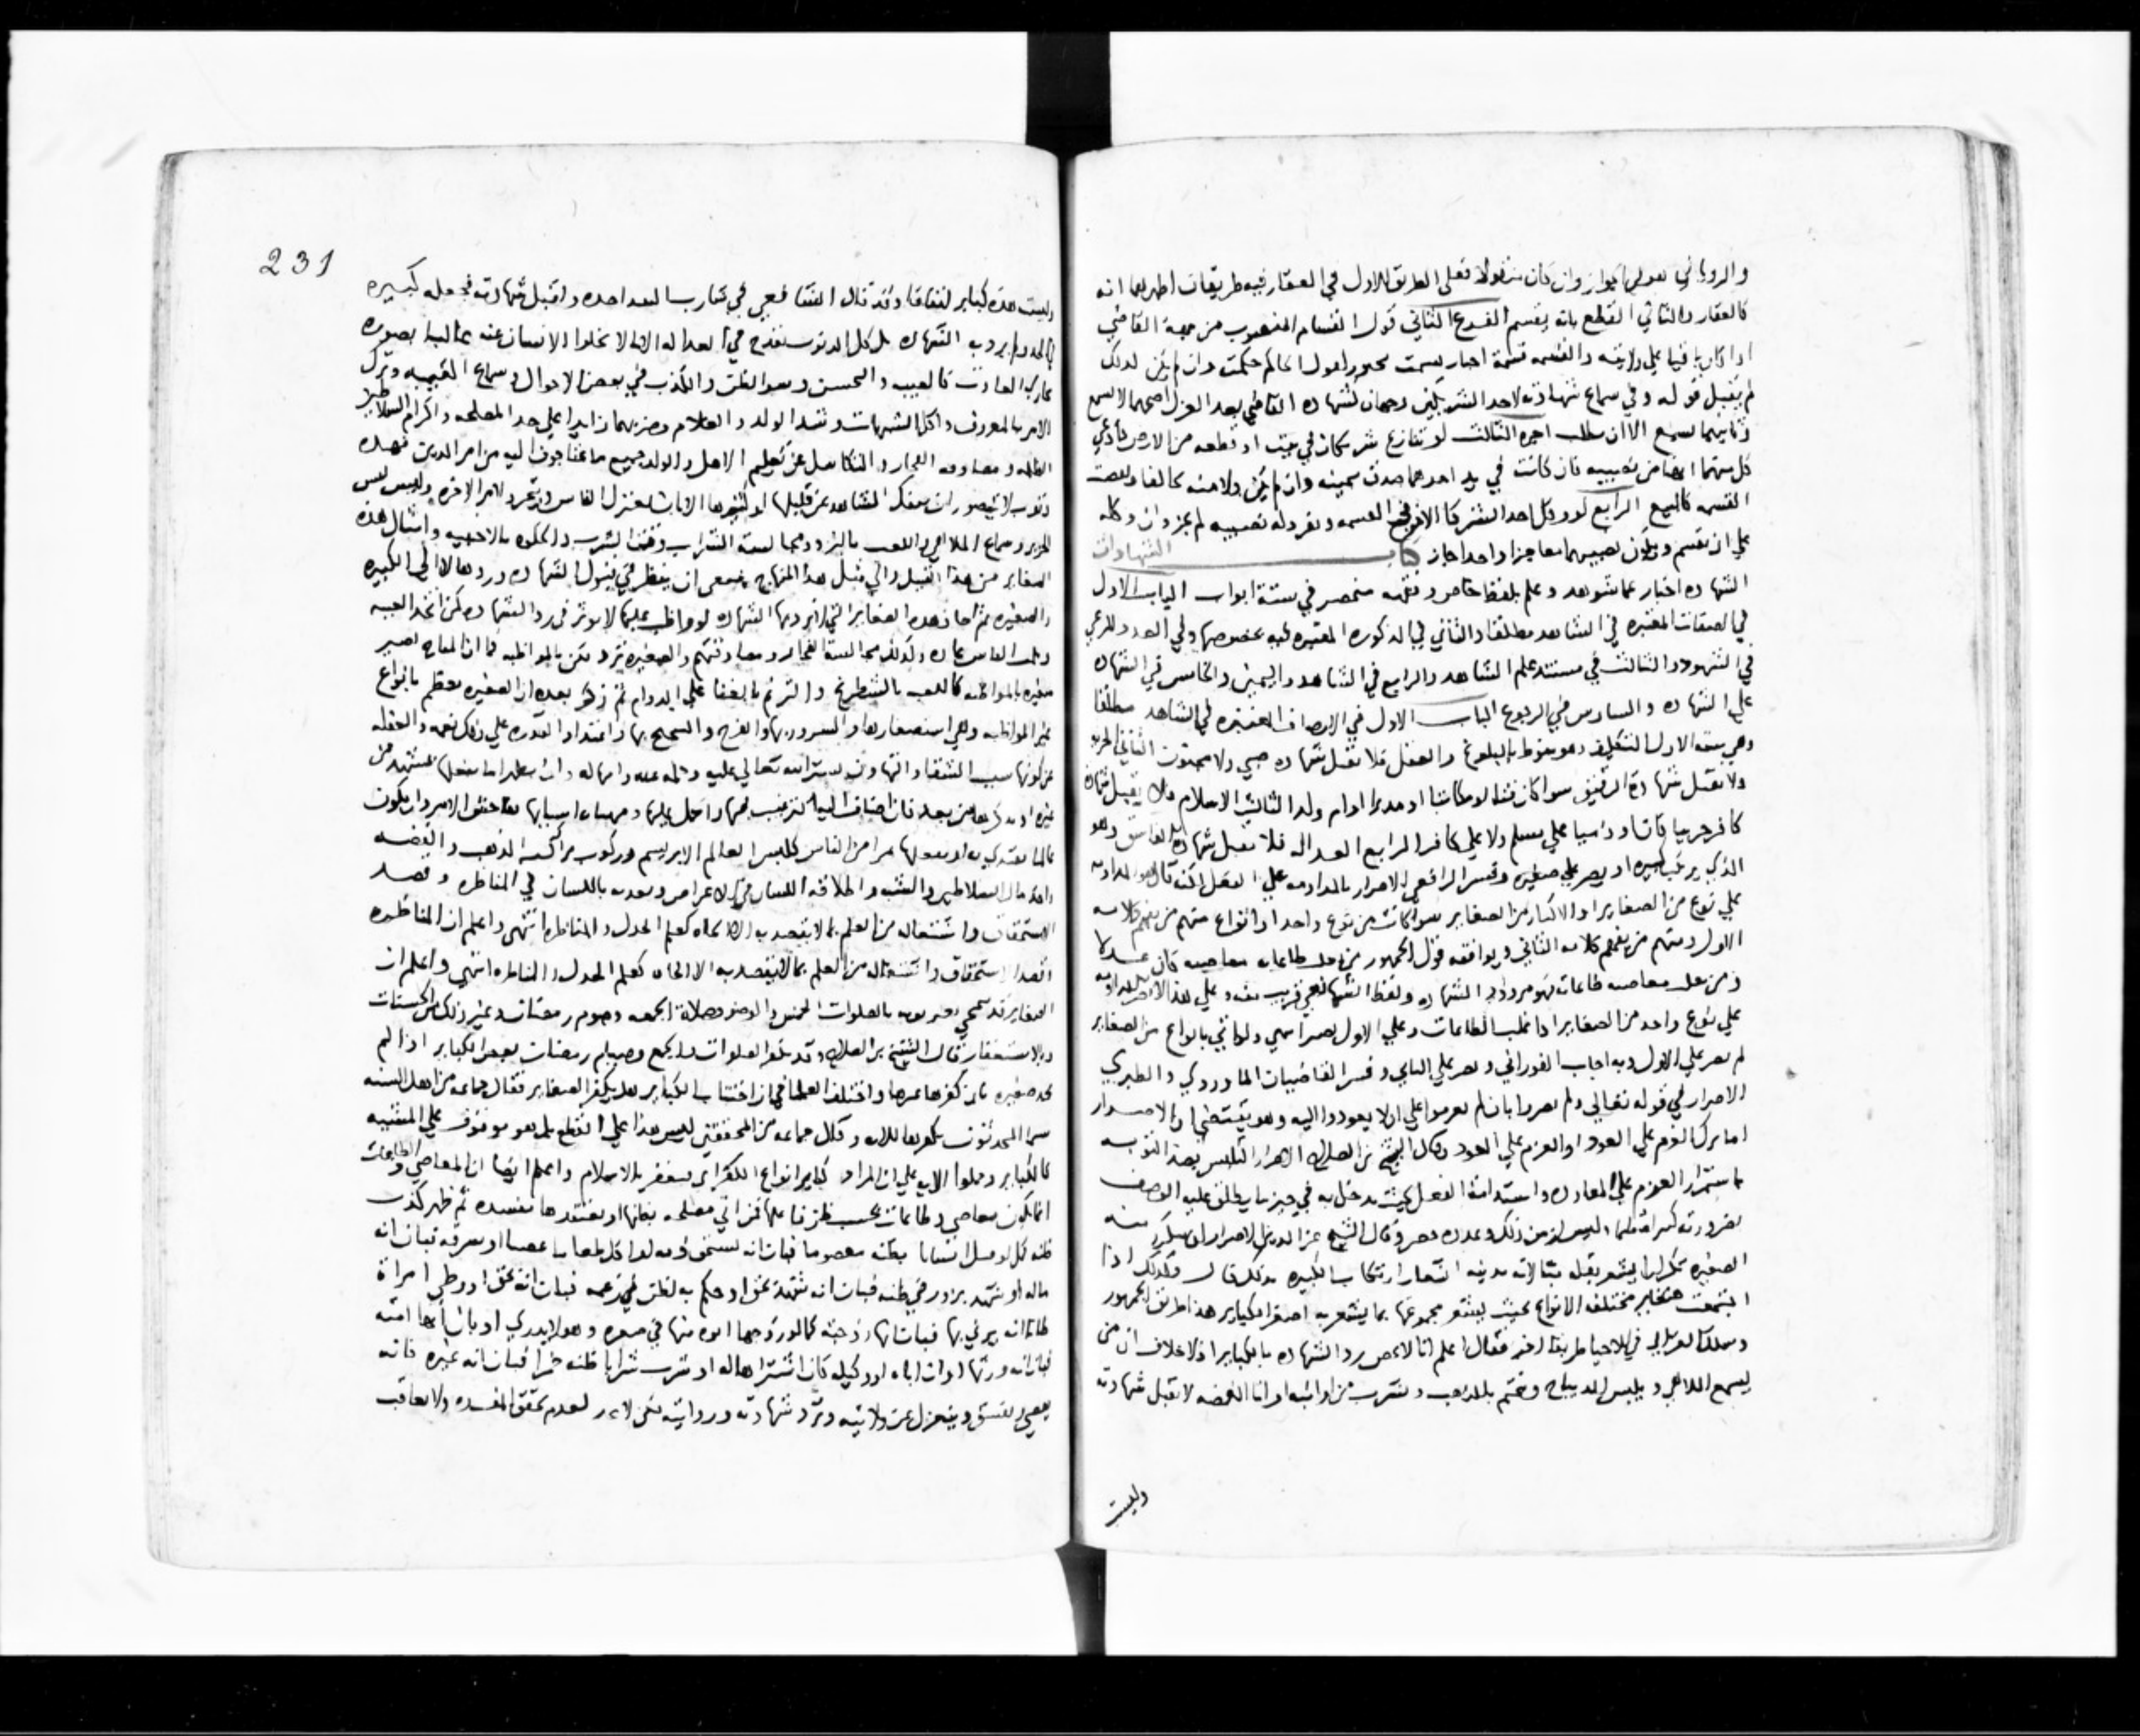 والروياني هو لها كجواز وان كان منقولا فعلى الطريق الاول في العقار فيه طريقات اظهرهما انه
كالعقار والثاني القطع بانه يقسم الفرع الثاني قول القسام المنصوب من جهة القاضي
اذا كان باقيا علي ولايته والقسمه قسمة اجبار يسمت كقول الحاكم حكمت وان لم يكن لذلك
لم يقبل قوله وفي سماع شهادته لاحد الشريكين وجهان كشهاده القاضي بعد العزل اصحهما لا تسمع
وثانيهما تسمع الا ان طلب اجره الثالث لو تنازع شريكان في بيت او قطعه من الارض فادعي
كل منهما انها من نصيبه فان كانت في يد احدهما صدق بيمينه وان لم يكن ولا منه تحالفا ونقضت
القسمه كالبيع الرابع لو وكل احد الشريكا الاخر في القسمه ويفرد له نصيبه لم يجز وان وكله
علي ان يقسم ويكون نصيبهما معا جزا واحدا جاز كتاب الشهادات
الشهاده اخبار عما شوهد وعلم بلفظ خاص وفقهه منحصر في ستة ابواب الباب الاول
في الصفات المعتبره في الشاهد مطلقا والثاني في الذكوره المعتبره فيه بخصوصها وفي العدد المرعي
في الشهود والثالث في مستند علم الشاهد والرابع في الشاهد واليمين والخامس في الشهاده
علي الشهاده والسادس في الرجوع الباب الاول في الاوصاف المعتبره في الشاهد مطلقا
وهي سته الاول التكليف وهو منوط بالبلوغ والعقل فلا تقبل شهاده صبي ولا مجنون الثاني الحريه
ولا تقبل شهادة الرقيق سوا كان قنا او مكاتبا او مدبرا او ام ولد الثالث الاسلام فلا يقبل شهادة
كافر حربيا كان او ذميا علي مسلم ولا علي كافر الرابع العداله فلا تقبل شهادة الفاسق وهو
الذي يرتكب كبيره او يصر علي صغيره وفسر الرافعي الاصرار بالمداومه علي الفعل لكن قال هو المداومه
علي نوع من الصغاير او الاكثار من الصغاير سوا كانت من نوع واحد او انواع منهم من يفهم كلامه
الاول ومنهم من يفهم كلامه الثاني ويوافقه قول الجمهور من غلب طاعاته معاصيه كان عدلا
ومن غلب معاصيه طاعاته فهو مردود الشهاده ولفظ الشافعي قريب منه وعلي هذا لا تضر المداومه
علي نوع واحد من الصغاير اذا غلب الطاعات وعلي الاول يضر
لم يصر علي الاول وبه اجاب الفوراني ويصر علي الثاني وفسر القاضيان الماوردي والطبري
الاصرار في قوله تعالي ولم يصروا بان لم يعزموا علي ان لا يعودوا اليه وهو يقتضي
اما بترك العزم علي العود او العزم علي العود وقال الشيخ بن الصلاح الاصرار التلبس بضد التوبه
باستمرار العزم علي المعاوده واستدامة الفعل بحيث يدخل به في حيز ما يطلق عليه الوصف
بصيرورته كبيره وليس لزمن ذلك وعدده حصر وقال الشيخ عز الدين الاصرار ان يتكرر منه
الصغيره تكرارا يشعر بقله مبالاته بدينه اشعار ارتكاب الكبيره بذلك قال وكذلك اذا
اجتمعت صغاير مختلفه الانواع بحيث يشعر مجموعها بما يشعر به اصغر الكباير هذا طريق الجمهور
وسلك الغزالي في الاحيا طريقا اخر فقال اعلم انا لا نخص رد الشهاده بالكباير اذ لا خلاف ان من
يسمع الملاهي ويلبس الديباج ويختم بالذهب ويشرب من اواني الفضه لا تقبل شهادته
وليست
231
وليست هذه كباير اتفاقا وقد قال الشافعي في شارب النبيذ احده واقبل شهادته فجعله كبيره
في الحد ولم يرد به الشهاده بل كل الذنوب تقدح في العداله الا ما لا يخلوا الانسان عنه غالبا بضروره
مجاري العادات كالغيبه والتجسس وسوا الظن والكذب في بعض الاحوال وسماع الغيبه وترك
الامر بالمعروف واكل الشبهات وشتم الولد والغلام وضربهما زايدا علي حد المصلحه واكرام السلاطين
الظلمه ومصادقه الفجار والتكاسل عن تعليم الاهل والولد جميع ما يحتاجون اليه من امر الدين فهذه
ذنوب لا يتصور ان ينفك الشاهد عن قليلها او كثيرها الا بان يعتزل الناس ويتجرد لامر الاخره وليس لبس
الحرير وسماع الملاهي واللعب بالنرد ومجالسة الشراب وقت الشرب والخلوه بالاجنبيه وامثال هذه
الصغاير من هذا القبيل والي مثل هذا المنهاج ينبغي ان ينظر في قبول الشهاده وردها لا الي الكبيره
والصغيره ثم احاد هذه الصغاير التي لا ترد بها الشهاده لو واظب عليها لاثر في رد الشهاده كمن اتخذ الغيبه
وثلب الناس عاده وكذلك مجالسة الفجار ومصادقتهم والصغيره تزد تكبر بالمواظبه كما ان المباح يصير
صغيره بالمواظبه كاللعب بالشطرنج والترنم بالغنا علي الدوام ثم ذكر بعده ان الصغيره تعظم بانواع
غير المواظبه وهي استصغارها والسرور بها والفرح والتبجح بها واعتداد القدره علي ذلك نعمه والغفله
عن كونها سبب الشقا والتهاون بستر الله تعالي عليه وحلمه عنه وامهاله
غيره او يذكرها من بعد فان اضاف اليه الترغيب فيها والحمل عليها وتهيئه اسبابها تفاحش الامر وان يكون
عالما يقتدي به او يفعلها بمراي من الناس كلبس العالم الابريسم وركوب مراكب الذهب والفضه
واخذ مال السلاطين والشبه واطلاقه اللسان في الاعراض وتعديه باللسان في المناظره وقصد
الاستخفاف واشتغاله من العلم بما لا يقصد به الا الجاه كعلم الجدل والمناظره انتهى واعلم ان المناظره
اقصد الاستخفاف واشتغاله من العلم بما لا يقصد به الا الجاه كعلم الجدل والمناظره انتهى واعلم ان
الصغاير قد تمحي بالصلوات الخمس والوضو وصلاة الجمعه وصوم رمضان وغير ذلك من الحسنات
وبالاستغفار قال الشيخ بن الصلاح وقد تكفر الصلوات والجمع وصيام رمضان بعض الكباير اذا لم
يجد صغيره واختلف العلما في ان اجتناب الكباير هل يكفر الصغاير فقال جماعه من اهل السنه
سيما المحدثون نكفرها للايه وقال جماعه من المحققين ليس هذا علي القطع بل هو موقوف علي المشيه
كالكباير وحملوا الايه علي ان المراد كباير انواع الكفر اي يغفر بالاسلام واعلم ايضا ان المعاصي والطاعات
انما تكون معاصي وطاعات بحسب ظن فاعلها فمن اتي مصلحه يظنها او يعتقدها مفسده ثم ظهر كذب
ظنه كمن قتل انسانا يظنه معصوما فبان انه يستحق دمه او اكل طعاما غصبا او سرقه فبان انه
ماله او شهد بزور في ظنه فبان انه شهد بحق او حكم بباطل في زعمه فبان انه بحق او وطي امراة
ظانا انه يزني بها فبان انها زوجته كما لو زوجها ابوه منها في صغره وهو لا يدري او بان انها امته
فبان انه ورثها او ان اباه او وكيله كان اشتراها له او شرب شرابا ظنه خمرا فبان انه غيره فانه
يعصي ويفسق وينعزل عن ولايته وترد شهادته وروايته لكن لا يحد لعدم تحقق المفسده ولا يعاقب